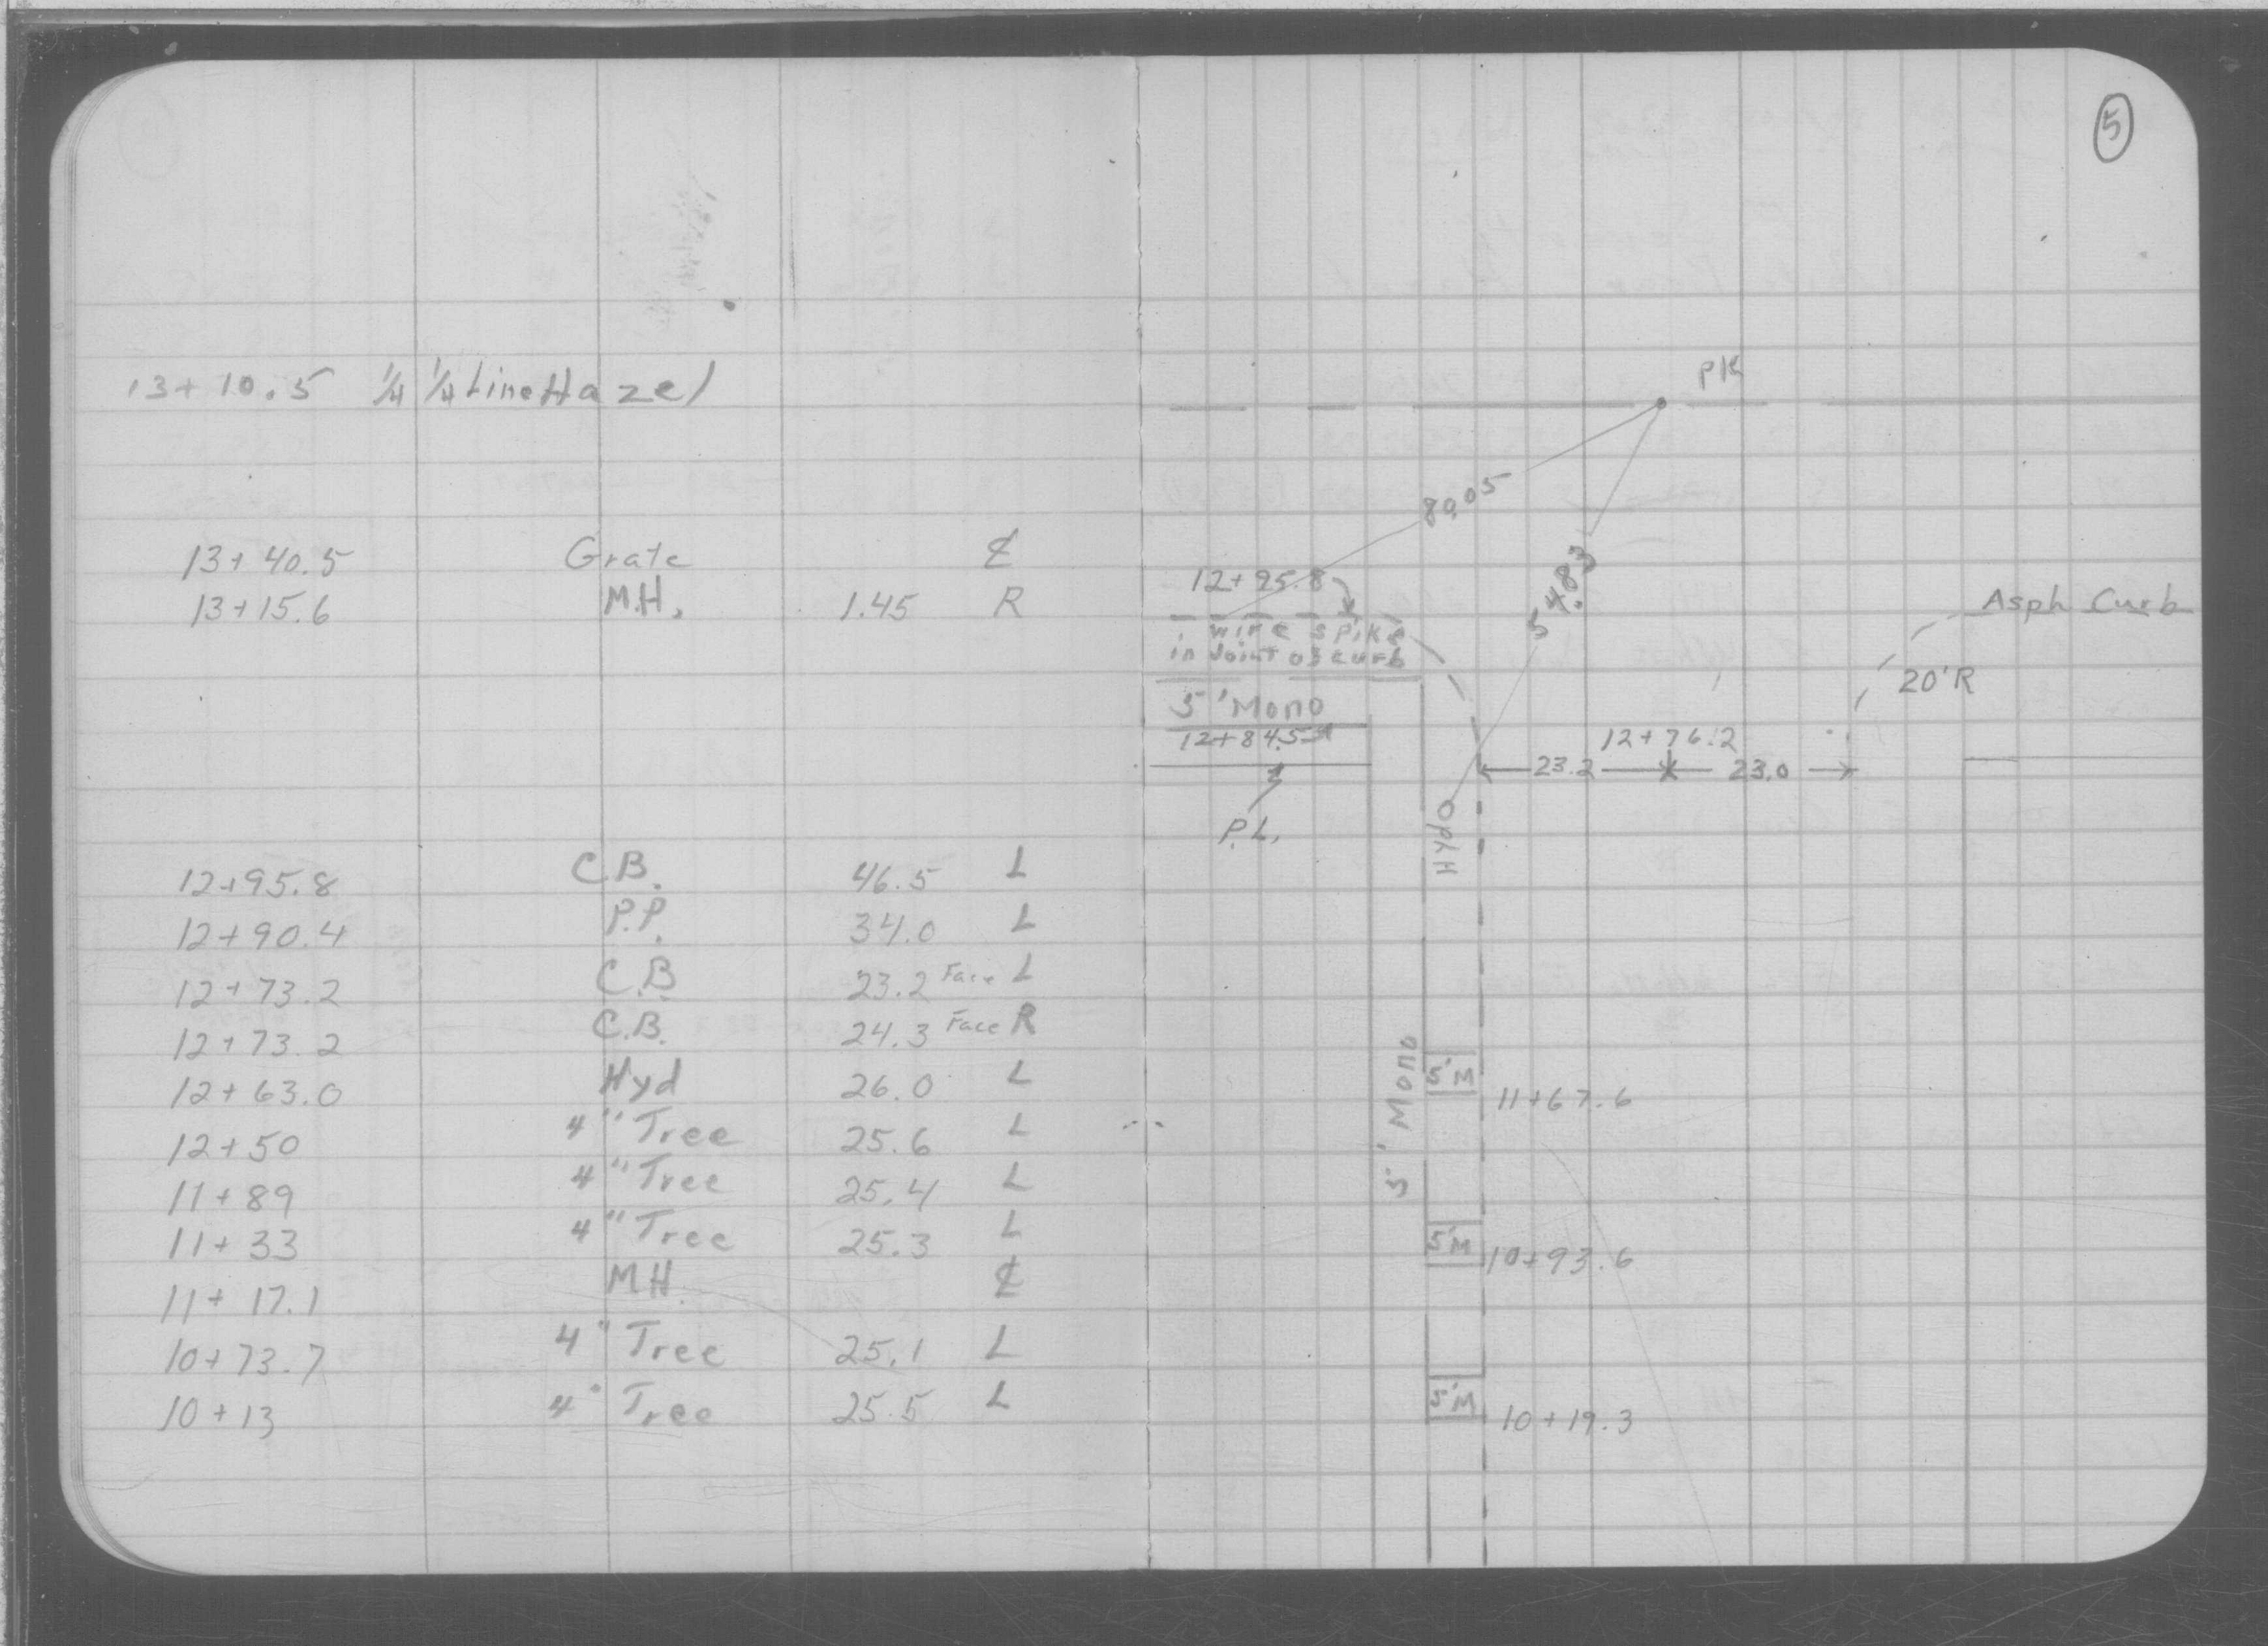 5
13+10.5 1/4 1/4 Line Hazel
13+40.5 Grate ℄
13+15.6 M.H. 1.45 R
12+95.8 C.B. 46.5 L
12+90.4 P.P. 34.0 L
12+73.2 C.B. 23.2 Face L
12+73.2 C.B. 24.3 Face R
12+63.0 Hyd 26.0 L
12+50 4" Tree 25.6 L
11+89 4" Tree 25.4 L
11+33 4" Tree 25.3 L
11+17.1 M.H. ℄
10+73.7 4" Tree 25.1 L
10+13 4" Tree 25.5 L
PK
80.05
54.83
12+95.8
in wire spike
in Joint of curb
5' Mono
12+84.5
P.L.
Asph Curb
20'R
12+76.2
23.2 23.0
Hyd
5' Mono
5'M 11+67.6
5'M 10+93.6
5'M 10+19.3